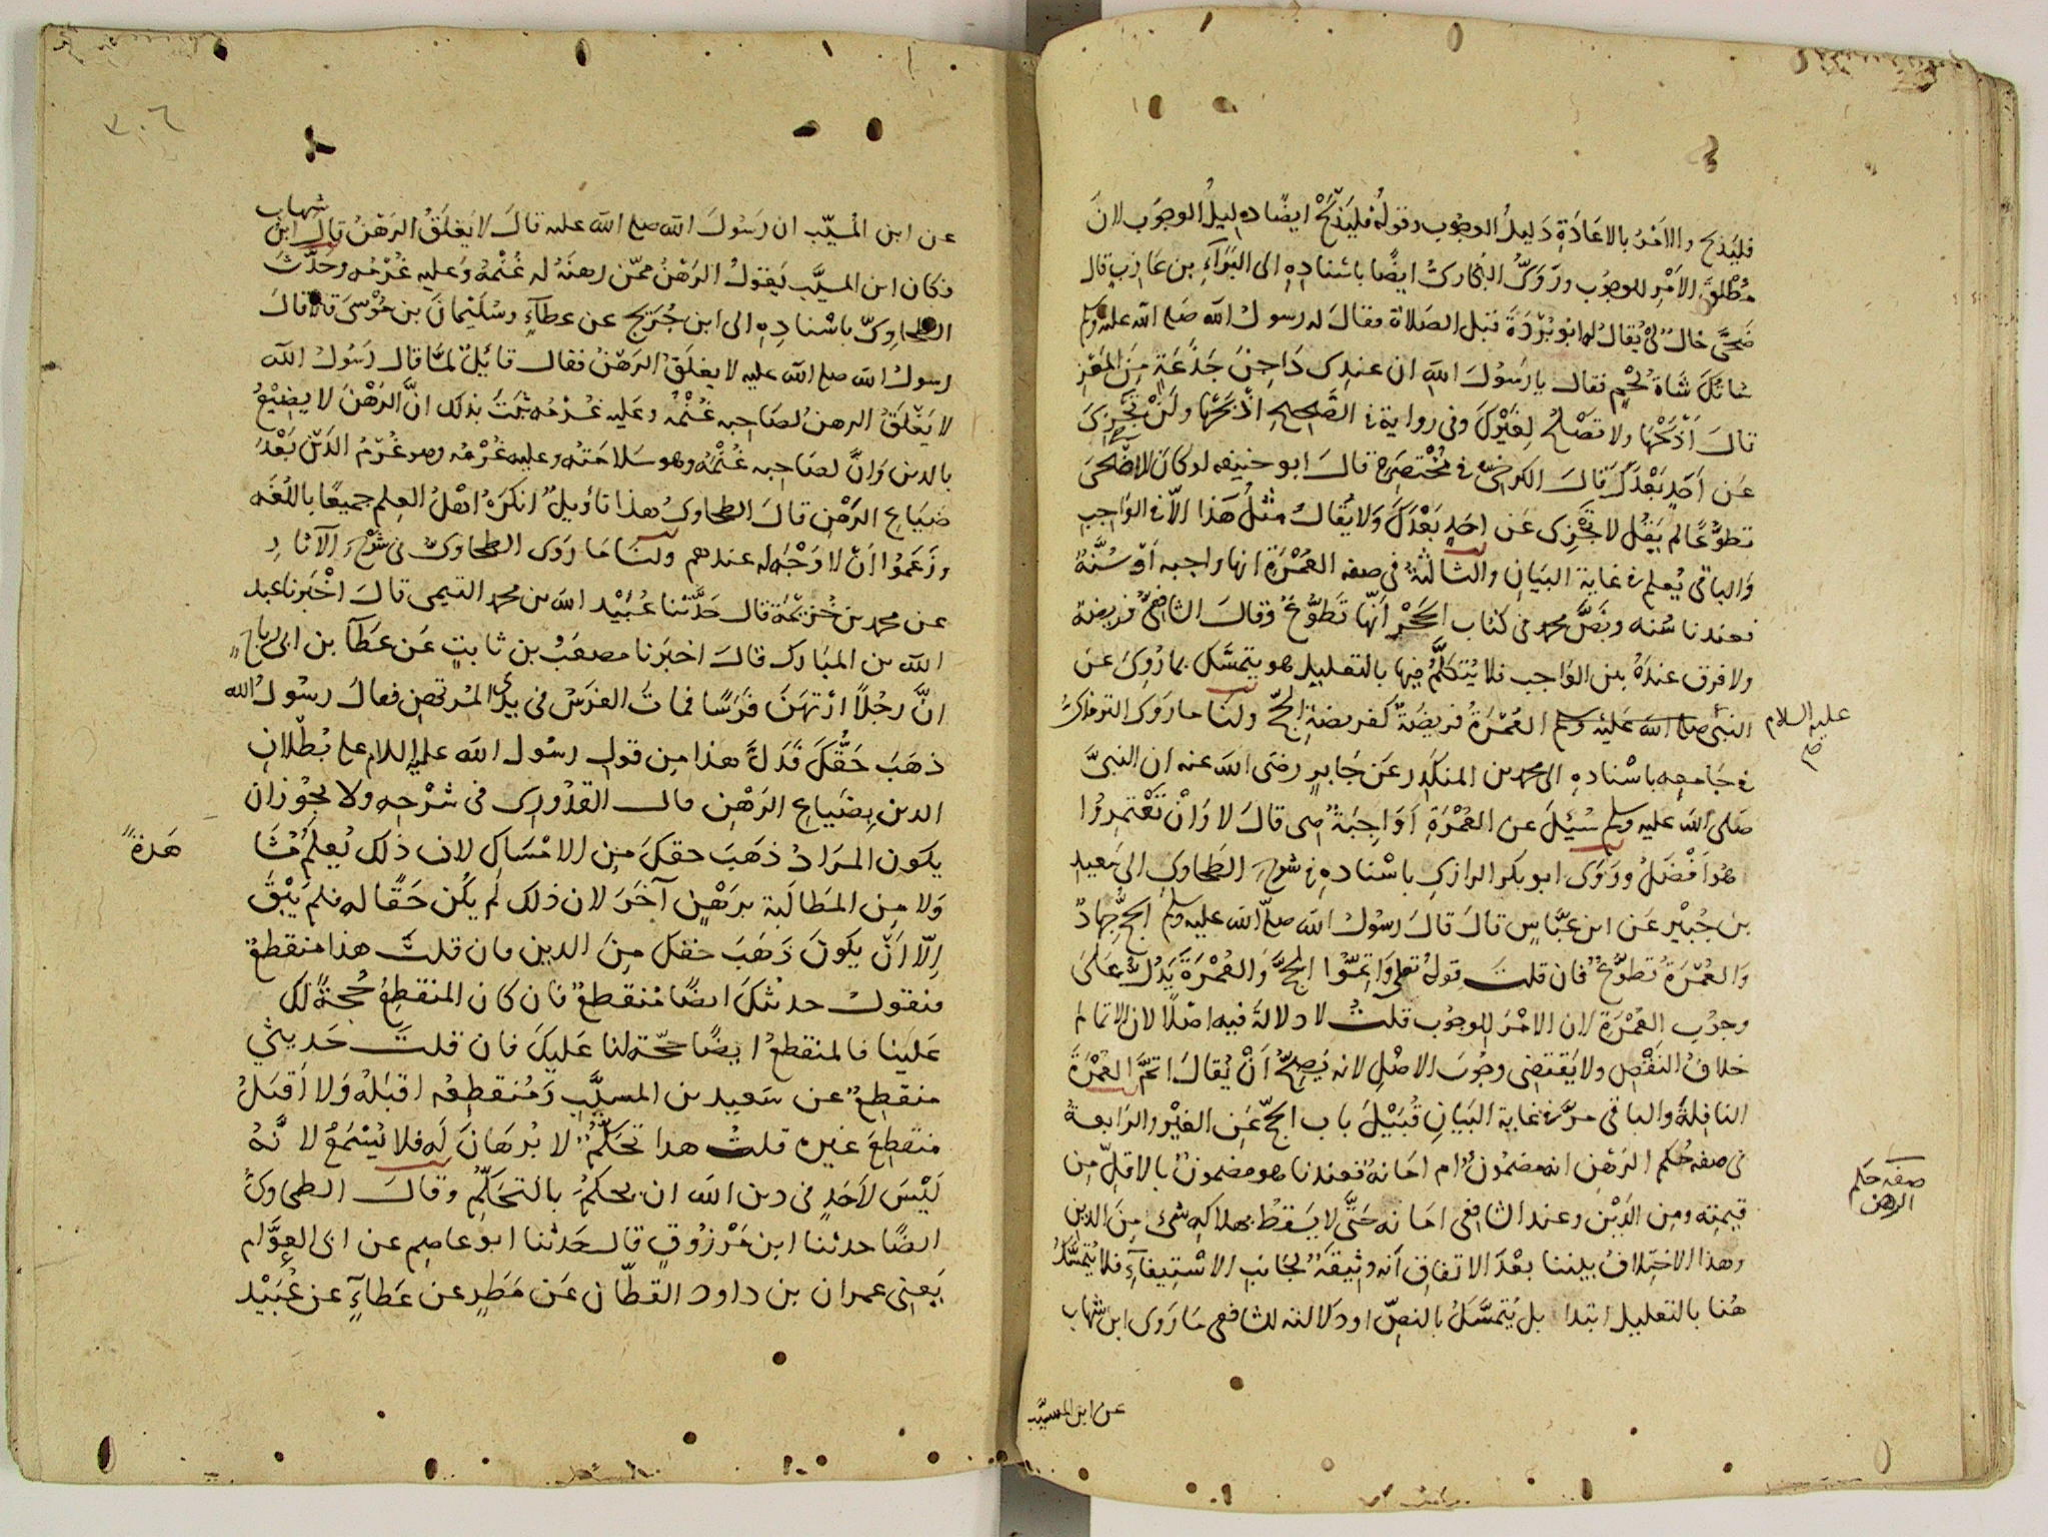 فليذبح والامر بالاعادة دليل الوجوب وقوله فليذبح ايضا دليل الوجوب لان
مطلق الامر للوجوب وروى البخارى ايضا باسناده الى البراء بن عازب قال
ضحى خال لى يقال له ابو بردة قبل الصلاة فقال له رسول الله صلى الله عليه وسلم
شاتك شاة لحم فقال يا رسول الله ان عندى داجن جذعة من المعز
قال اذبحها ولا تصلح لغيرك وفى رواية فى الصحيح اذبحها ولن تجزى
عن احد بعدك قال الكرخى فى مختصره قال ابو حنيفه لو كان الاضحى
تطوعا لم يقل لا تجزى عن احد بعدك ولا يقال مثل هذا الا فى الواجب
والباقى يعلم فى غاية البيان والثالثة فى صفه العمرة انها واجبه او سنة
فعندنا سنه ونص محمد فى كتاب الحجر انها تطوع وقال الشافعى فريضة
ولا فرق عنده بين الواجب فلا يتكلم فيها بالتعليل هو يتمسك بما روى عن
النبى صلى الله عليه وسلم العمرة فريضة كفريضة الحج ولنا ما روى الترمذى
عليه السلام
صح
فى جامعه باسناده الى محمد بن المنكدر عن جابر رضى الله عنه ان النبى
صلى الله عليه وسلم سئل عن العمرة اواجبة هى قال لا وان تعتمروا
هو افضل وروى ابو بكر الرازى باسناده فى شرح الطحاوى الى سعيد
بن جبير عن ابن عباس قال قال رسول الله صلى الله عليه وسلم الحج جهاد
والعمرة تطوع فان قلت قوله تعالى واتموا الحج والعمرة يدل على
وجوب العمرة لان الامر للوجوب قلت لا دلالة فيه اصلا لان الاتمام
خلاف النقص ولا يقتضى وجوب الاصل لانه يصح ان يقال اتم العمرة
النافلة والباقى مر فى غاية البيان قبيل باب الحج عن الغير والرابعة
فى صفه حكم الرهن انه مضمون ام امانة فعندنا هو مضمون بالاقل من
صفه حكم
الرهن
قيمته ومن الدين وعند الشافعى امانه حتى لا يسقط بهلاكه شىء من الدين
وهذا الاختلاف بيننا بعد الاتفاق انه وثيقة لجانب الاستيفاء فلا يتمسك
هنا بالتعليل ابتدا بل يتمسك بالنص او دلالته للشافعى ما روى ابن شهاب
عن ابن المسيب
٣٠٦
عن ابن المسيب ان رسول الله صلى الله عليه قال لا يغلق الرهن قال ابن شهاب
وكان ابن المسيب يقول الرهن ممن رهنه له غنمه وعليه غرمه وحدث
الطحاوى باسناده الى ابن جريج عن عطاء وسليمان بن موسى قالا قال
رسول الله صلى الله عليه لا يغلق الرهن فقال قائل لما قال رسول الله
لا يغلق الرهن لصاحبه غنمه وعليه غرمه ثبت بذلك ان الرهن لا يضيع
بالدين وان لصاحبه غنمه وهو سلامته وعليه غرمه وهو غرم الدين بعد
ضياع الرهن قال الطحاوى هذا تاويل انكره اهل العلم جميعا باللغه
وزعموا ان لا وجه له عندهم ولنا ما روى الطحاوى فى شرح الآثار
عن محمد بن خزيمة قال حدثنا عبيد الله بن محمد التيمى قال اخبرنا عبد
الله بن المبارك قال اخبرنا مصعب بن ثابت عن عطآ بن ابى رباح
ان رجلا ارتهن فرسا فمات الفرس فى يدى المرتهن فقال رسول الله
ذهب حقك فدل هذا من قول رسول الله عليه السلام على بطلان
الدين بضياع الرهن قال القدورى فى شرحه ولا يجوز ان
يكون المراد ذهب حقك من الامساك لان ذلك يعلم مشا
هدة
ولا من المطالبة برهن آخر لان ذلك لم يكن حقا له فلم يبق
الا ان يكون ذهب حقك من الدين فان قلت هذا منقطع
فنقول حديثك ايضا منقطع فان كان المنقطع حجة لك
علينا فالمنقطع ايضا حجة لنا عليك فان قلت حديثى
منقطع عن سعيد بن المسيب ومنقطعه اقبله ولا اقبل
منقطع غيره قلت هذا تحكم لا برهان له فلا يسمع لانه
ليس لاحد فى دين الله ان يحكم بالتحكم وقال الطحاوى
ايضا حدثنا ابن مرزوق قال حدثنا ابو عاصم عن ابى العوام
يعنى عمران بن داود القطان عن مطر عن عطاء عن عبيد